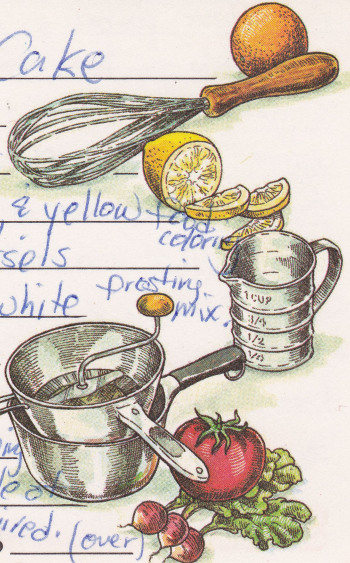 Cake
& yellow food
coloring
sels
white frosting
mix.
1 CUP
3/4
1/2
1/4
at
(over)